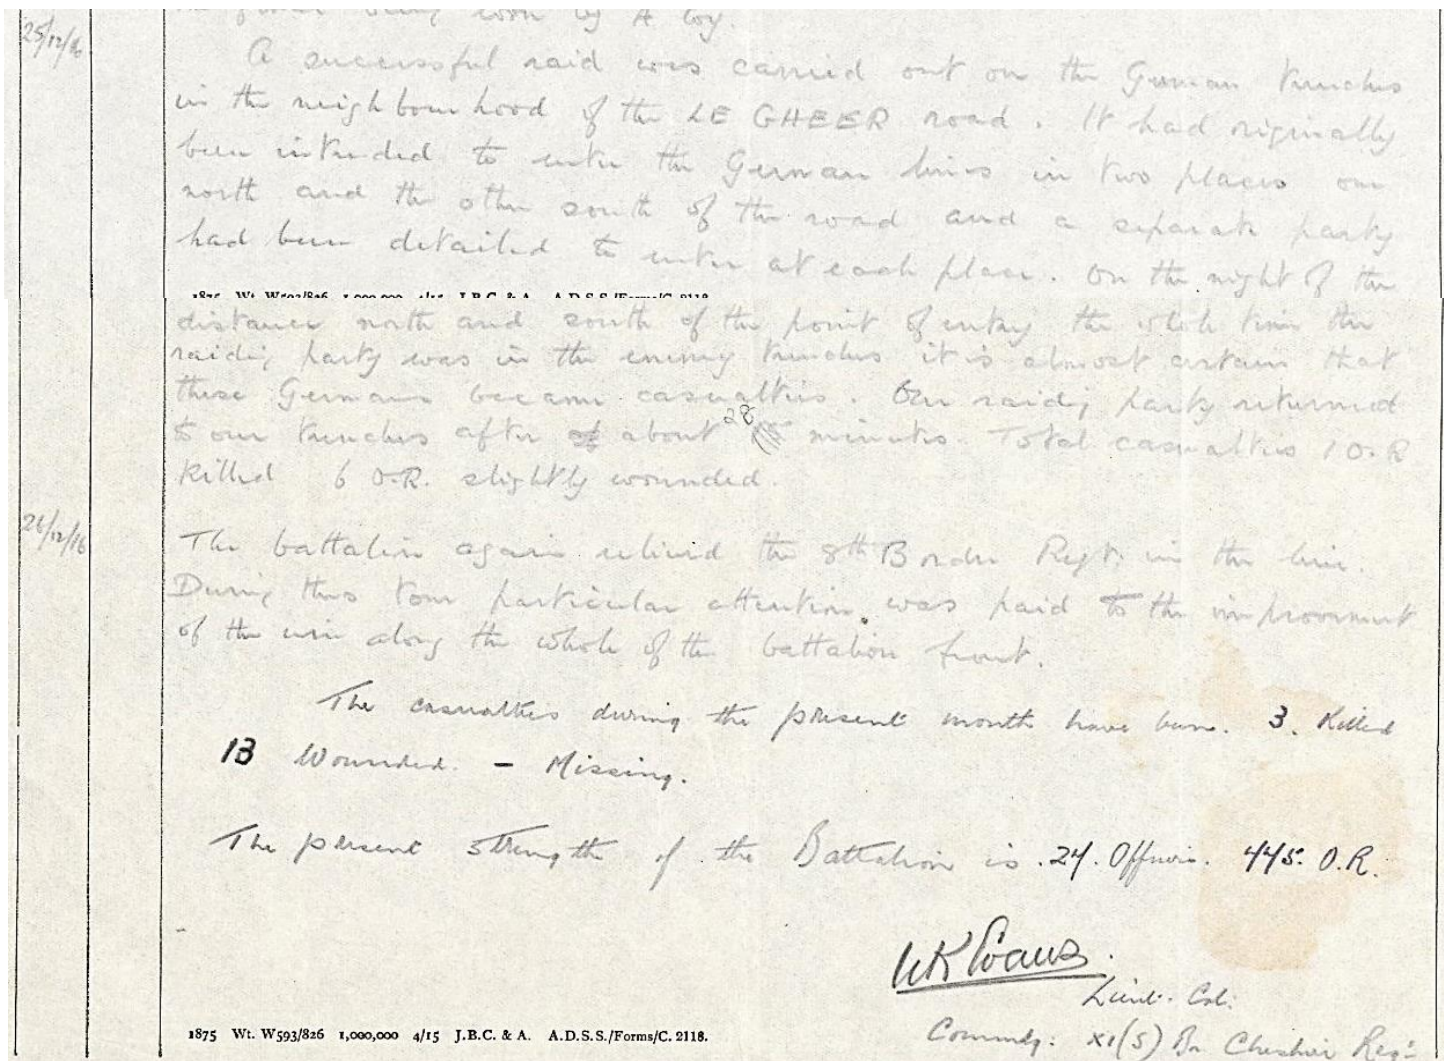 being won by A Coy.
25/12/16
A successful raid was carried out on the German trenches
in the neighbourhood of the LE GHEER road. It had originally
been intended to enter the German lines in two places one
north and the other south of the road and a separate party
had been detailed to enter at each place. On the night of the
1875 Wt. W593/826 1,000,000 4/15 J.B.C. & A. A.D.S.S./Forms/C. 2118.
distance north and south of the point of entry the whole time the
raiding party was in the enemy trenches it is almost certain that
these Germans became casualties. Our raiding party returned
to our trenches after about 28 minutes. Total casualties 1 O.R
killed 6 O.R. slightly wounded.
26/12/16
The battalion again relieved the 8th Border Regt. in the line.
During this tour particular attention was paid to the improvement
of the wire along the whole of the battalion front.
The casualties during the present month have been. 3. Killed
13 Wounded. - Missing.
The present strength of the Battalion is 24. Officers. 445. O.R.
WK Evans.
Lieut. Col.
Commdg. XI(S) Bn Cheshire Regt
1875 Wt. W593/826 1,000,000 4/15 J.B.C. & A. A.D.S.S./Forms/C. 2118.